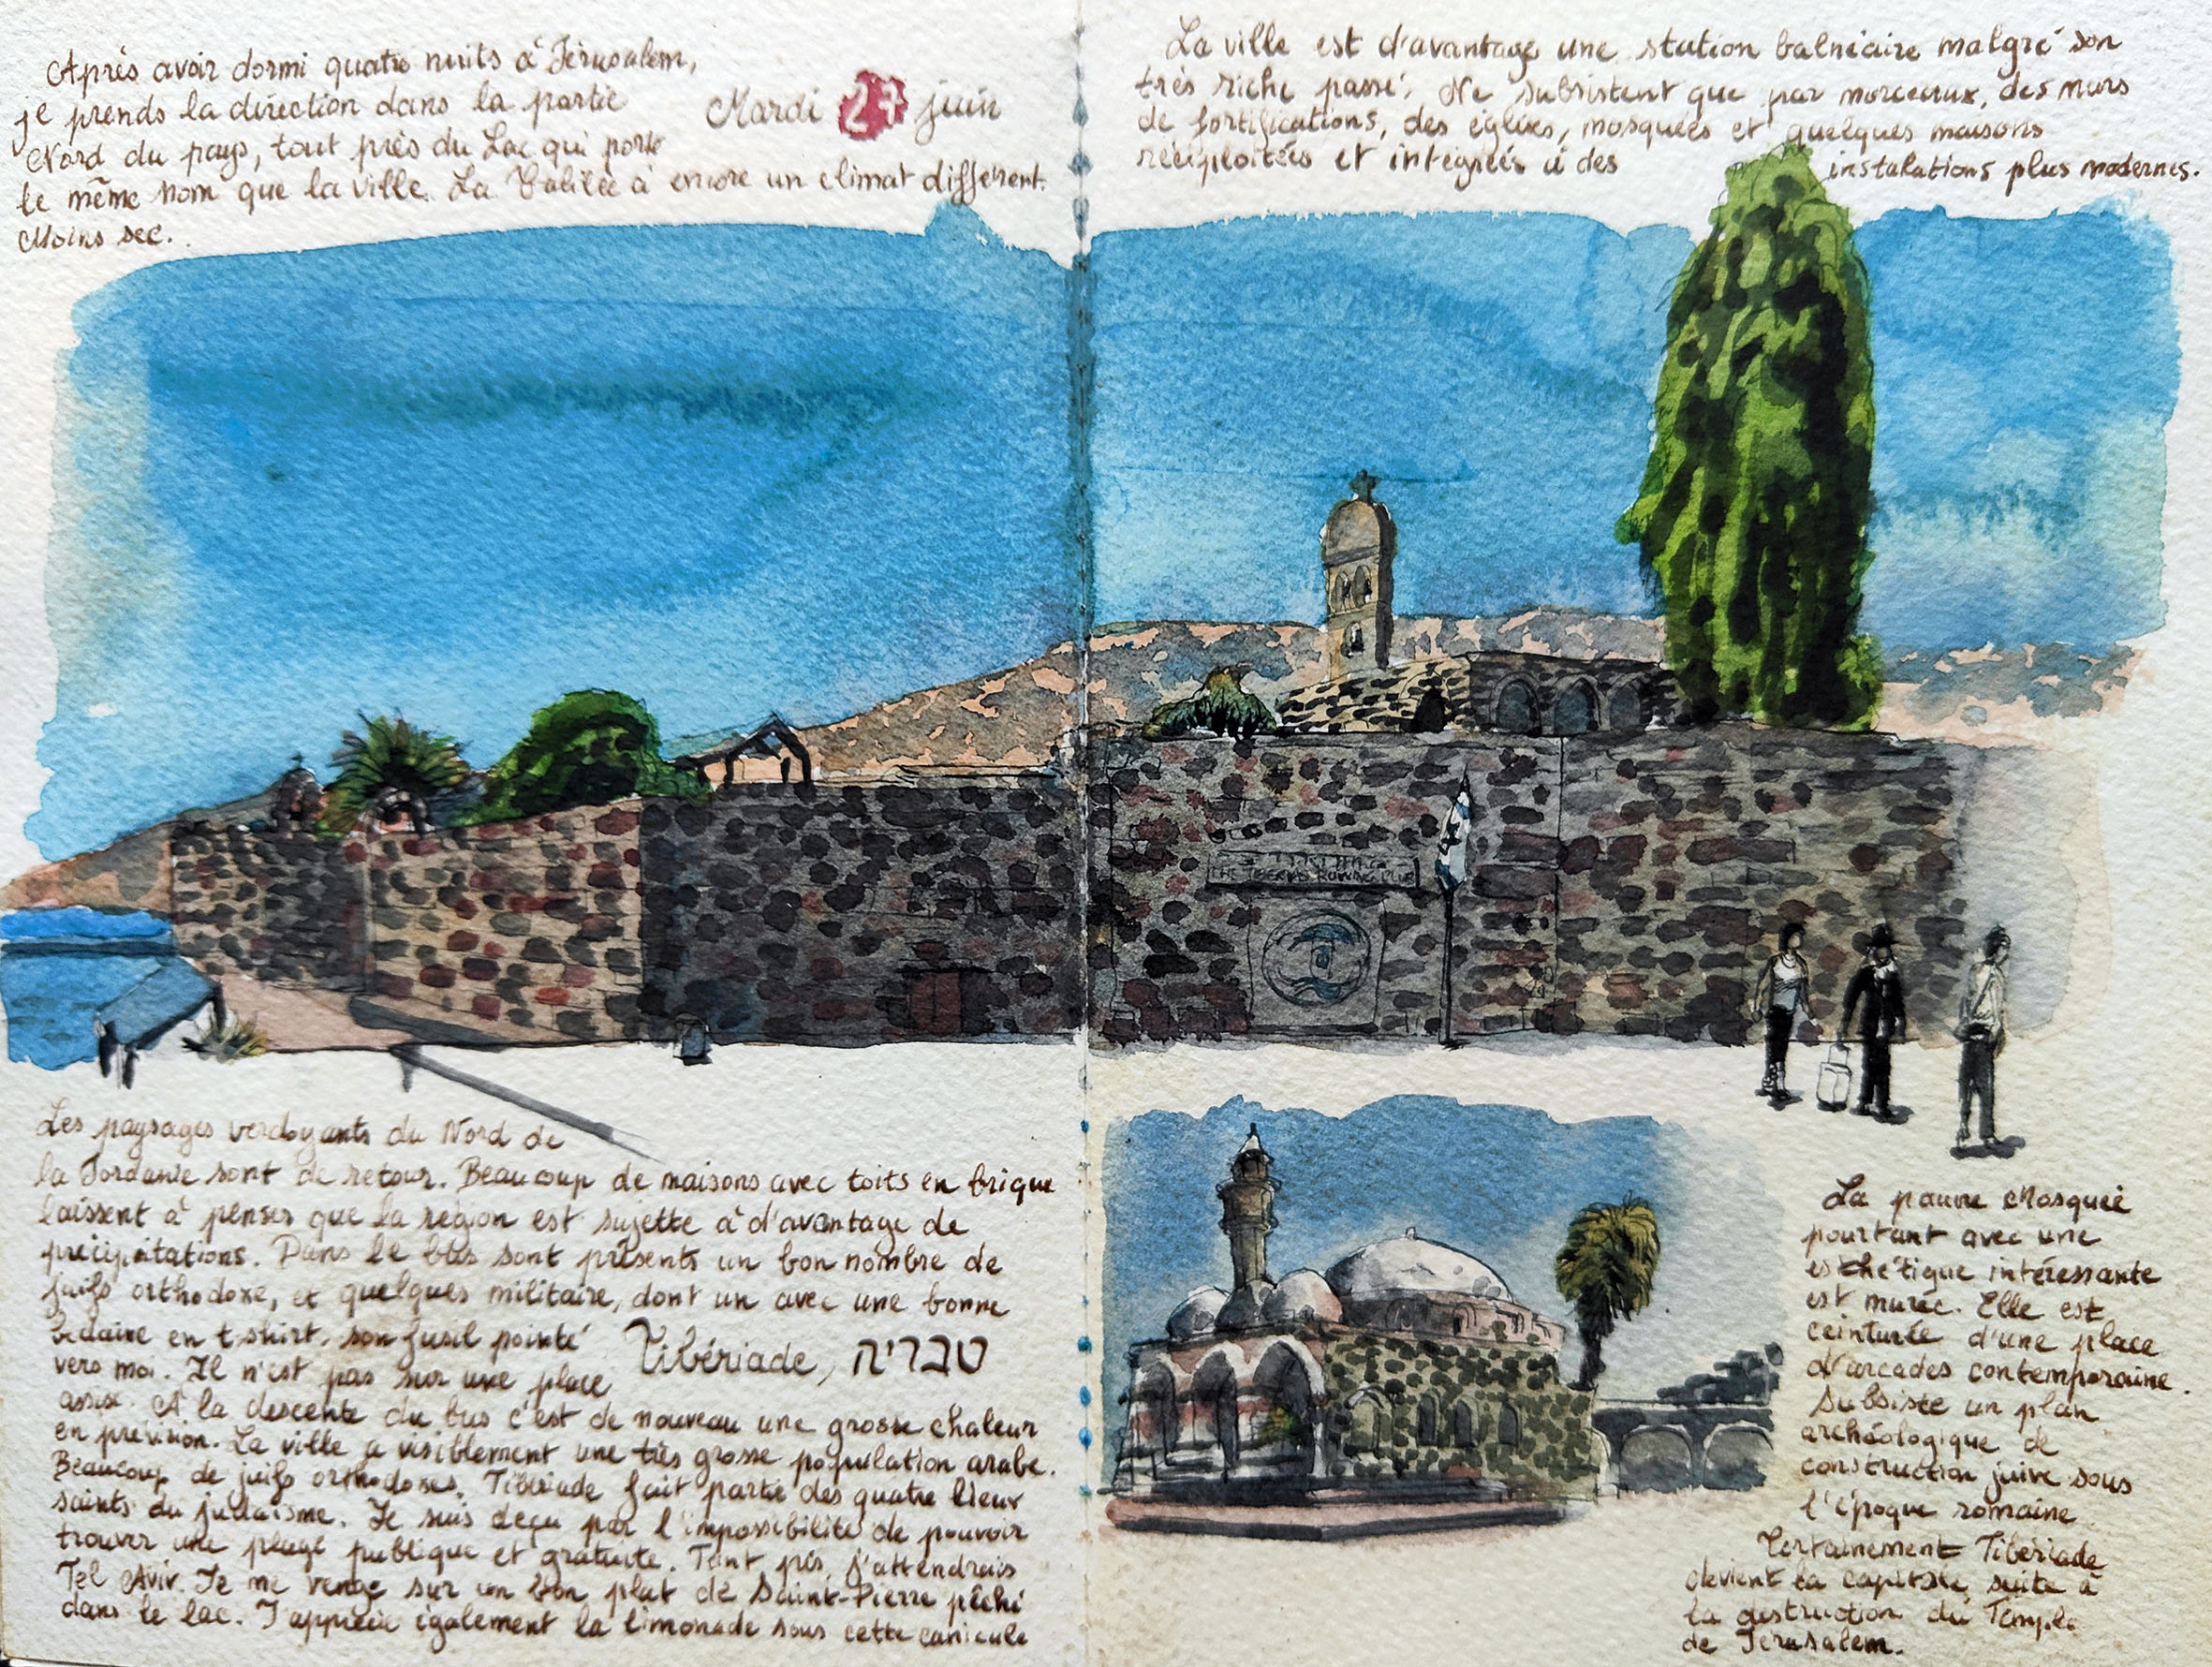 Après avoir dormi quatre nuits à Jérusalem,
je prends la direction dans la partie
Nord du pays, tout près du Lac qui porte
le même nom que la ville. La Galilée a encore un climat différent.
Moins sec.
Mardi 27 juin
La ville est d'avantage une station balnéaire malgré son
très riche passé. Ne subsistent que par morceaux, des murs
de fortifications, des églises, mosquées et quelques maisons
réexploitées et intégrées à des
instalations plus modernes.
THE TIBERIAS ROWING CLUB
Les paysages verdoyants du Nord de
la Jordanie sont de retour. Beaucoup de maisons avec toits en brique
laissent à penser que la région est sujette à d'avantage de
précipitations. Dans le bus sont présents un bon nombre de
juifs orthodoxe, et quelques militaire, dont un avec une bonne
bedaine en t-shirt, son fusil pointé
vers moi. Il n'est pas sur une place
assise. A la descente du bus c'est de nouveau une grosse chaleur
en prévision. La ville a visiblement une très grosse population arabe.
Beaucoup de juifs orthodoxes. Tibériade fait partie des quatre lieux
saints du judaïsme. Je suis déçu par l'impossibilité de pouvoir
trouver une plage publique et gratuite. Tant pis, j'attendrais
Tel Aviv. Je me venge sur un bon plat de Saint-Pierre pêché
dans le lac. J'apprécie également la limonade sous cette canicule
Tibériade, טבריה
La pauvre Mosquée
pourtant avec une
esthétique intéressante
est murée. Elle est
ceinturée d'une place
d'arcades contemporaine.
Subsiste un plan
archéologique de
construction juive sous
l'époque romaine
Certainement Tibériade
devient la capitale suite à
la destruction du Temple
de Jérusalem.